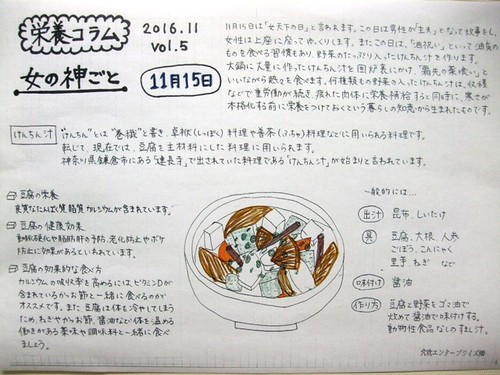 栄養コラム
2016.11
vol.5
女の神ごと
11月15日
11月15日は「女天下の日」と言われます。この日は男性が「主夫」となって炊事をし、
女性は上座に座ってゆっくりします。またこの日は、「油祝い」といって油気の
ものを食べる習慣もあり、野菜のたっぷり入ったけんちん汁を作ります。
大鍋に大量に作ったけんちん汁を囲炉裏にかけ、「霜先の薬喰い」と
いいながら熱々を食べます。何種類もの野菜の入ったけんちん汁は、収穫
などで重労働が続き、疲れた肉体に栄養補給すると同時に、寒さが
本格化する前に栄養をつけておくという暮らしの知恵から生まれたものです。
けんちん汁
"けんちん"とは"巻繊"と書き、卓袱(しっぽく)料理や普茶(ふちゃ)料理などに用いられる料理です。
転じて、現在では、豆腐を主材料にした料理に用いられます。
神奈川県鎌倉市にある"建長寺"で出されていた料理である"けんちん汁"が始まりと言われています。
豆腐の栄養
良質なたんぱく質、脂質、カルシウムが含まれています。
豆腐の健康効果
動脈硬化や脂肪肝の予防、老化防止やボケ
防止に効果があるといわれています。
豆腐の効果的な食べ方
カルシウムの吸収率を高めるには、ビタミンDが
含まれているかつお節と一緒に食べるのがオ
ススメです。また豆腐は体を冷やしてしまう
ため、ねぎやかつお節、醤油など体を温める
働きがある薬味や調味料と一緒に食べ
ましょう。
一般的には…
出汁 昆布、しいたけ
具 豆腐、大根、人参
ごぼう、こんにゃく
里芋、ねぎ など
味付け 醤油
作り方 豆腐と野菜をゴマ油で
炒めて醤油で味付けする。
動物性食品なしのすまし汁。
穴吹エンタープライズ㈱